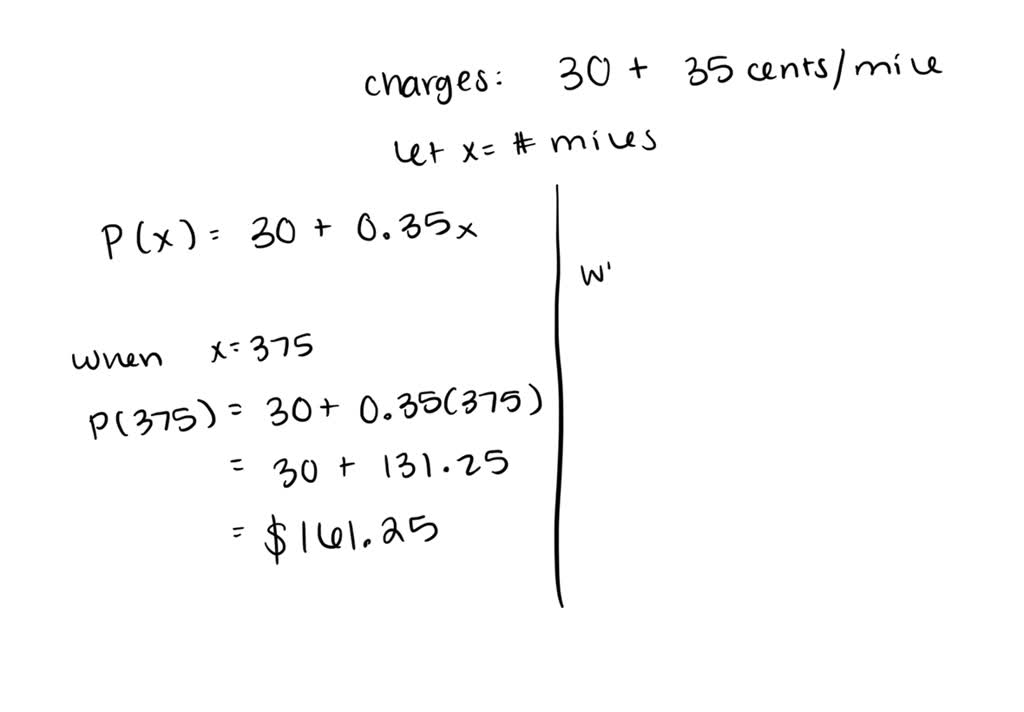 charges: 30 + 35 cents/mile
let x = # miles
P(x) = 30 + 0.35x
when x = 375
P(375) = 30 + 0.35(375)
= 30 + 131.25
= $161.25
w'